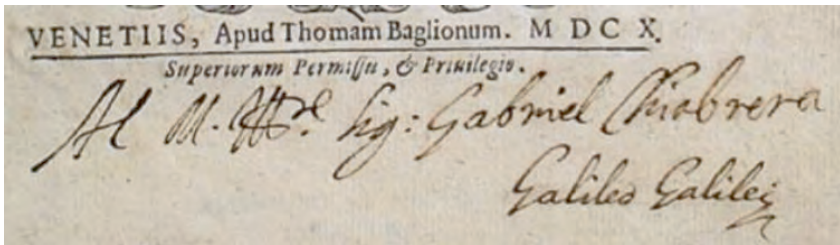 VENETIIS, Apud Thomam Baglionum. M D C X.
Superiorum Permiſſu, & Priuilegio.
Al M. Ill.re Sig: Gabriel Chiabrera
Galileo Galilei